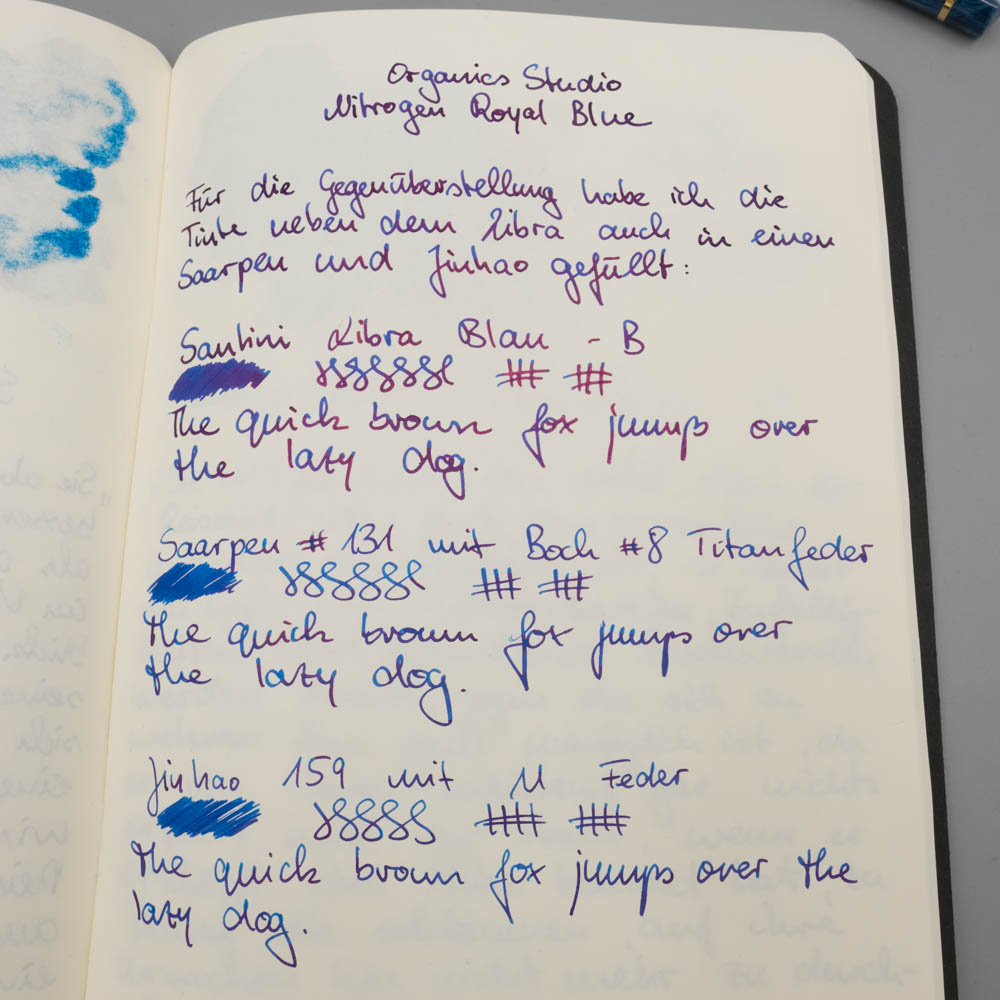 Organics Studio
Nitrogen Royal Blue
Für die Gegenüberstellung habe ich die
Tinte neben dem Libra auch in einen
Saarpen und Jinhao gefüllt:
Santini Libra Blau - B
The quick brown fox jumps over
the lazy dog.
Saarpen #131 mit Bock #8 Titanfeder
The quick brown fox jumps over
the lazy dog.
Jinhao 159 mit M Feder
The quick brown fox jumps over the
lazy dog.